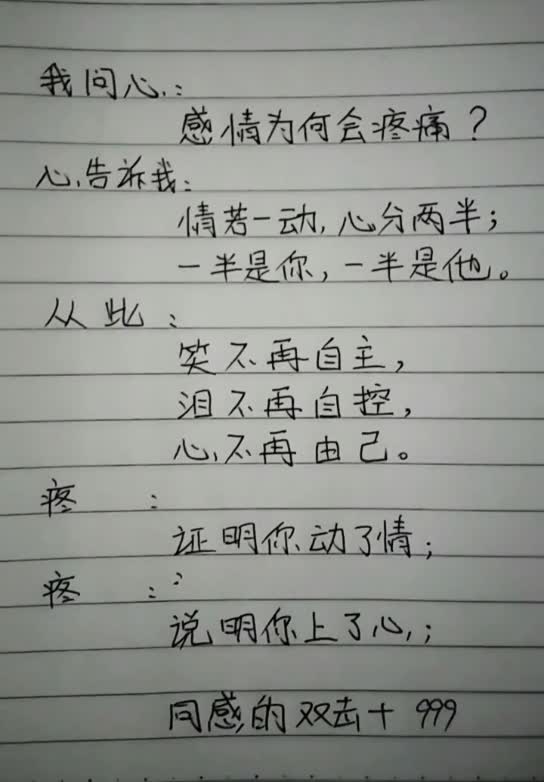 我问心：
感情为何会疼痛？
心告诉我：
情若一动，心分两半；
一半是你，一半是他。
从此：
笑不再自主，
泪不再自控，
心不再由己。
疼：
证明你动了情；
疼：
说明你上了心；
同感的双击+999